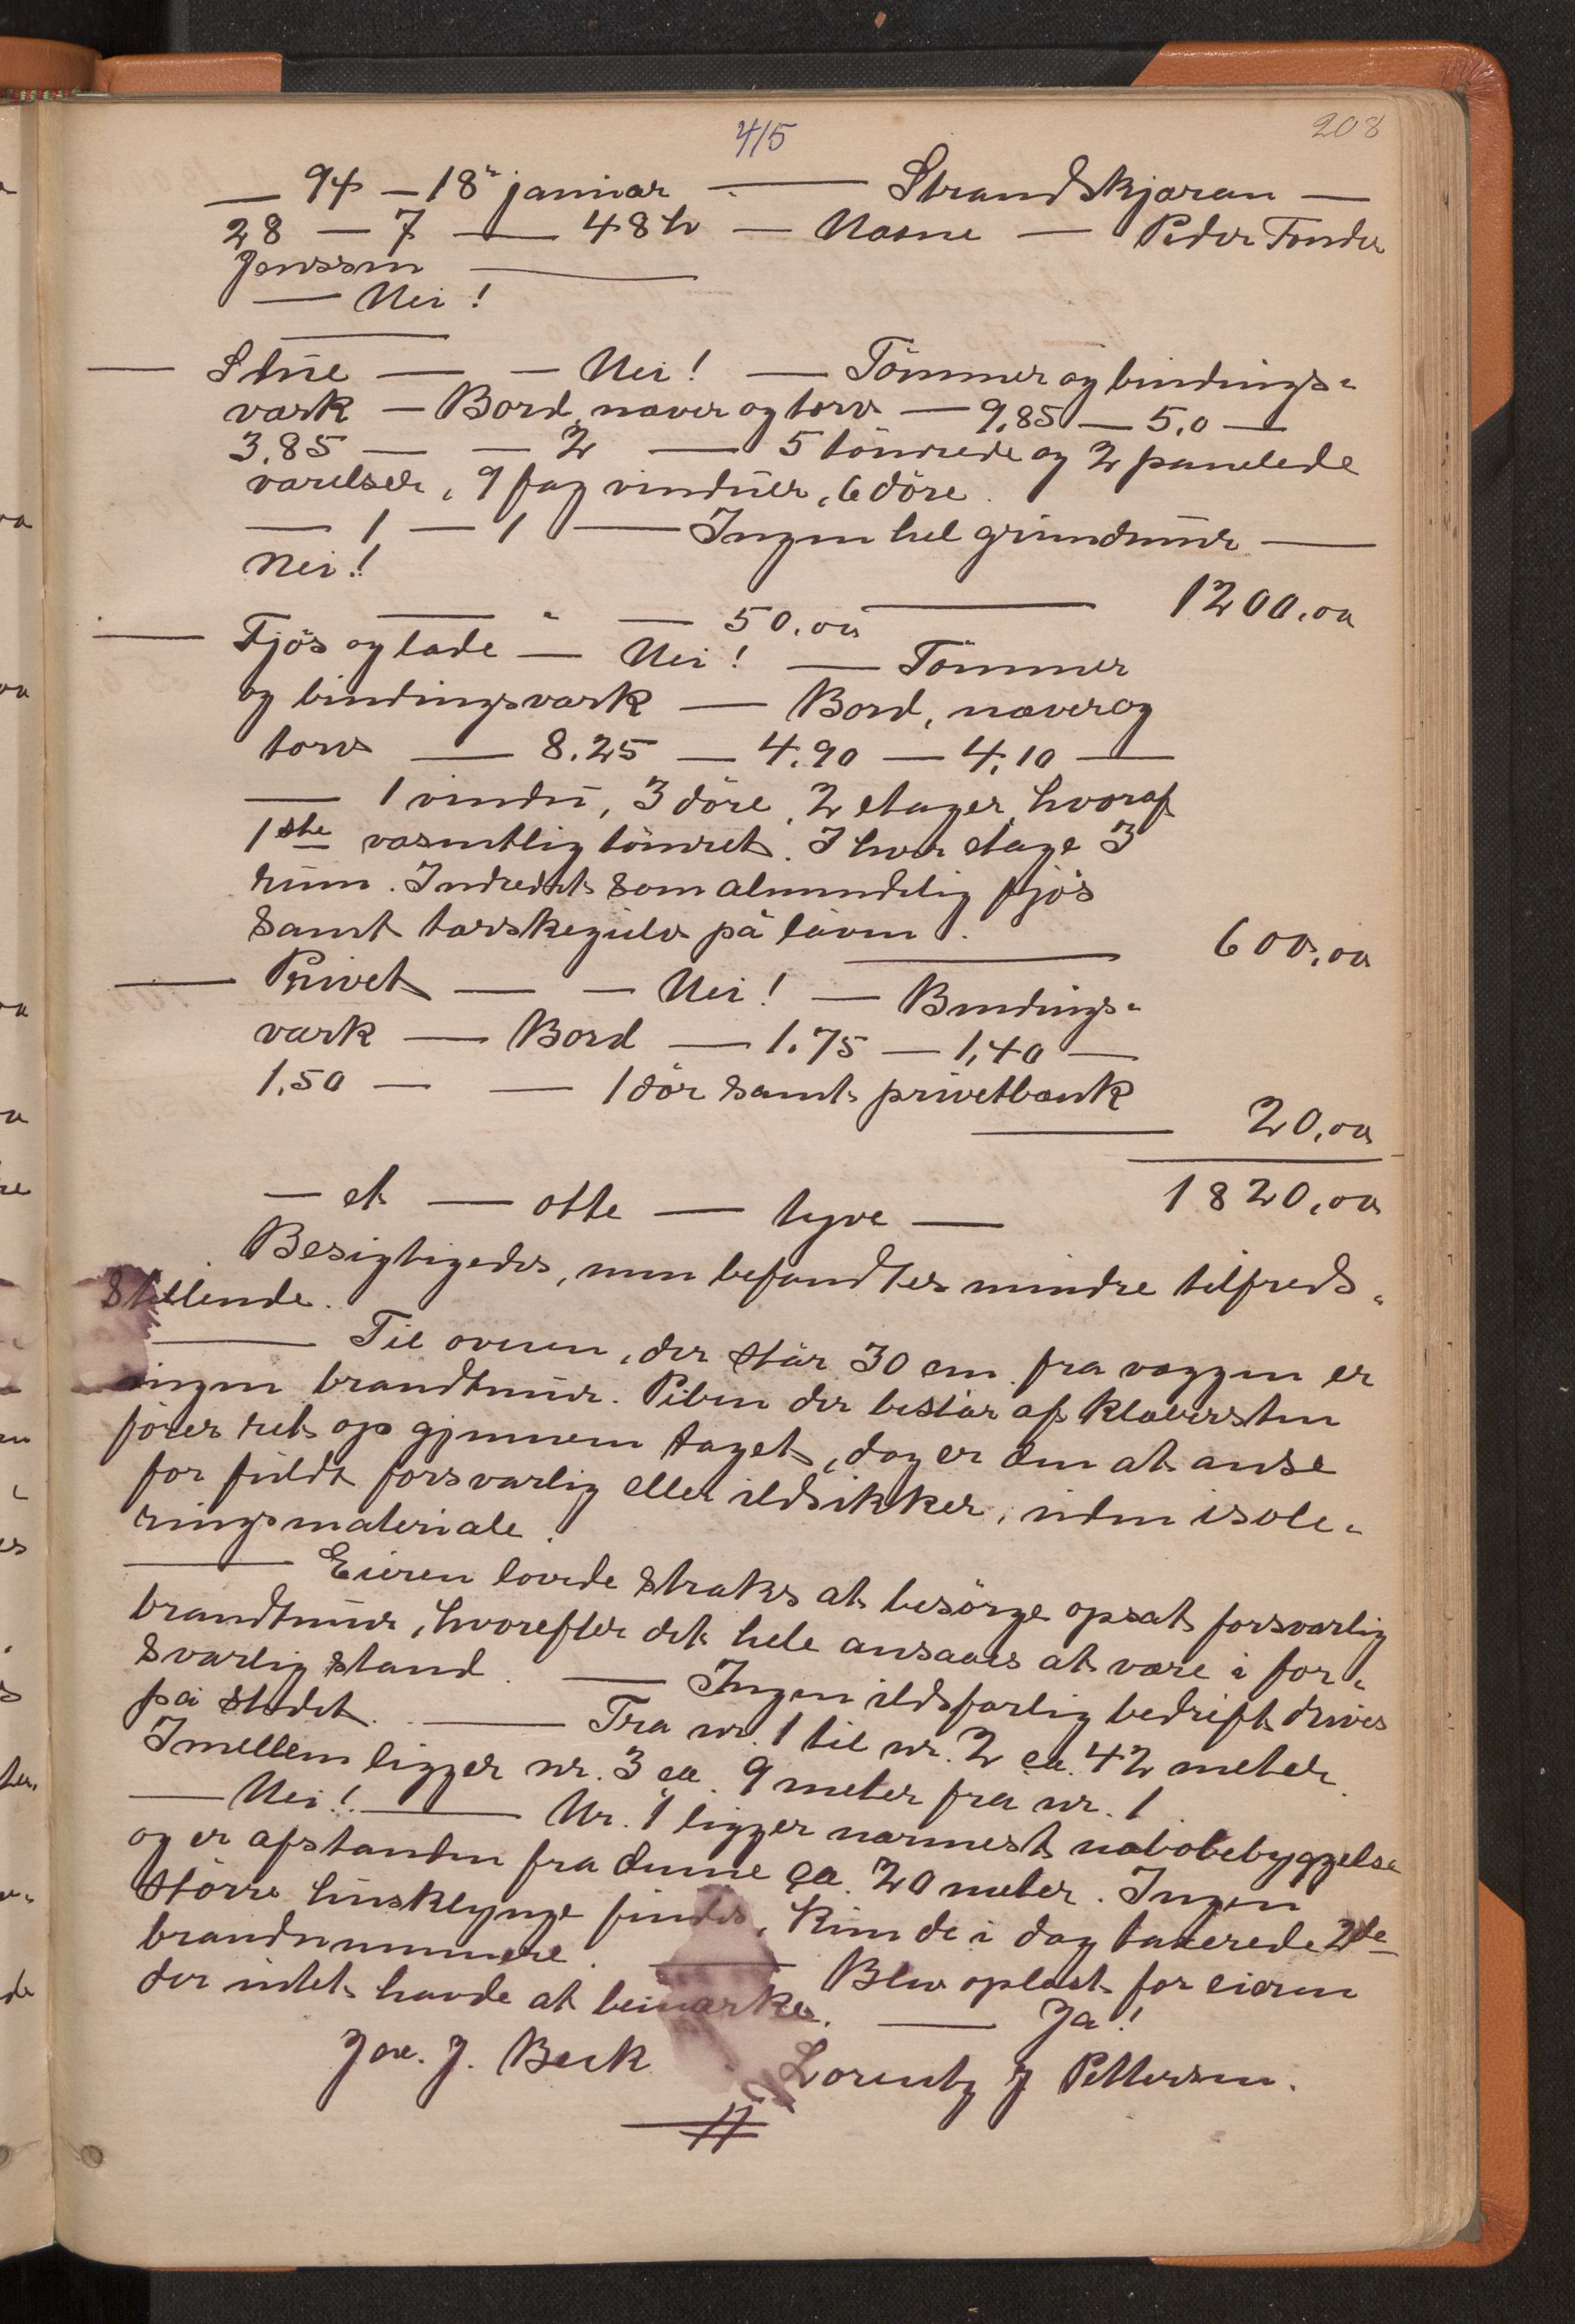 415
208
— 94 — 18de januar — Strandskjæran —
28 — 7 — 48 b — Næsne — Peder Tønder
Jenssen —
— Nei!
— Stue — — Nei! — Tömmer og bindings-
værk — Bord, næver og torv — 9.85 — 5.0 —
3.85 — — 2 — 5 tömrede og 2 panelede
værelser, 9 fag vinduer, 6 döre.
— 1 — 1 — Ingen hel grundmur —
Nei!
— " — 50.00 — 1200.00
— Fjös og lade — Nei! — Tömmer
og bindingsværk — Bord, næver og
torv — 8.25 — 4.90 — 4.10 —
— 1 vindu, 3 döre, 2 etager, hvoraf
1ste væsentlig tömret. I hver etage 3
rum. Indredet som almindelig fjös
samt tærskegulv på låven. — 600,00
— Privet — — Nei! — Bindings-
værk — Bord — 1.75 — 1,40 —
1.50 — — 1 dör samt privetbænk
— 20,00
— et — otte — tyve — 1820,00
Besigtigedes, men befandtes mindre tilfreds-
stillende.
— Til ovnen, der står 30 cm. fra væggen er
ingen brandmur. Piben der består af klæbersten
förer ret op gjennem taget, dog er den at anse
for fuldt forsvarlig eller ildsikker, uden isole-
ringsmateriale.
— Eieren lovede straks at besörge opsat forsvarlig
brandmur, hvorefter det hele ansaaes at være i for-
svarlig stand. — Ingen ildsfarlig bedrift drives
på stedet. — Fra nr. 1 til nr. 2 ca. 42 meter.
Imellem ligger nr. 3 ca. 9 meter fra nr. 1
— Nei! — Nr. 1 ligger nærmest nabobebyggelse
og er afstanden fra denne ca. 20 meter. Ingen
större husklynge findes, kun de i dag takserede 2de
brandnummere. — Blev oplæst for eieren
der intet havde at bemærke. — Ja!
Joh. J. Beck Lorentz J Pettersen.